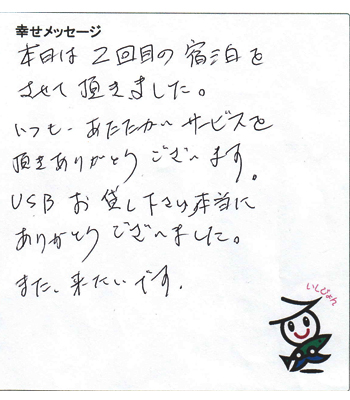 幸せメッセージ
本日は2回目の宿泊を
させて頂きました。
いつも、あたたかいサービスを
頂きありがとうございます。
USBお貸し下さり、本当に
ありがとうございました。
また、来たいです.